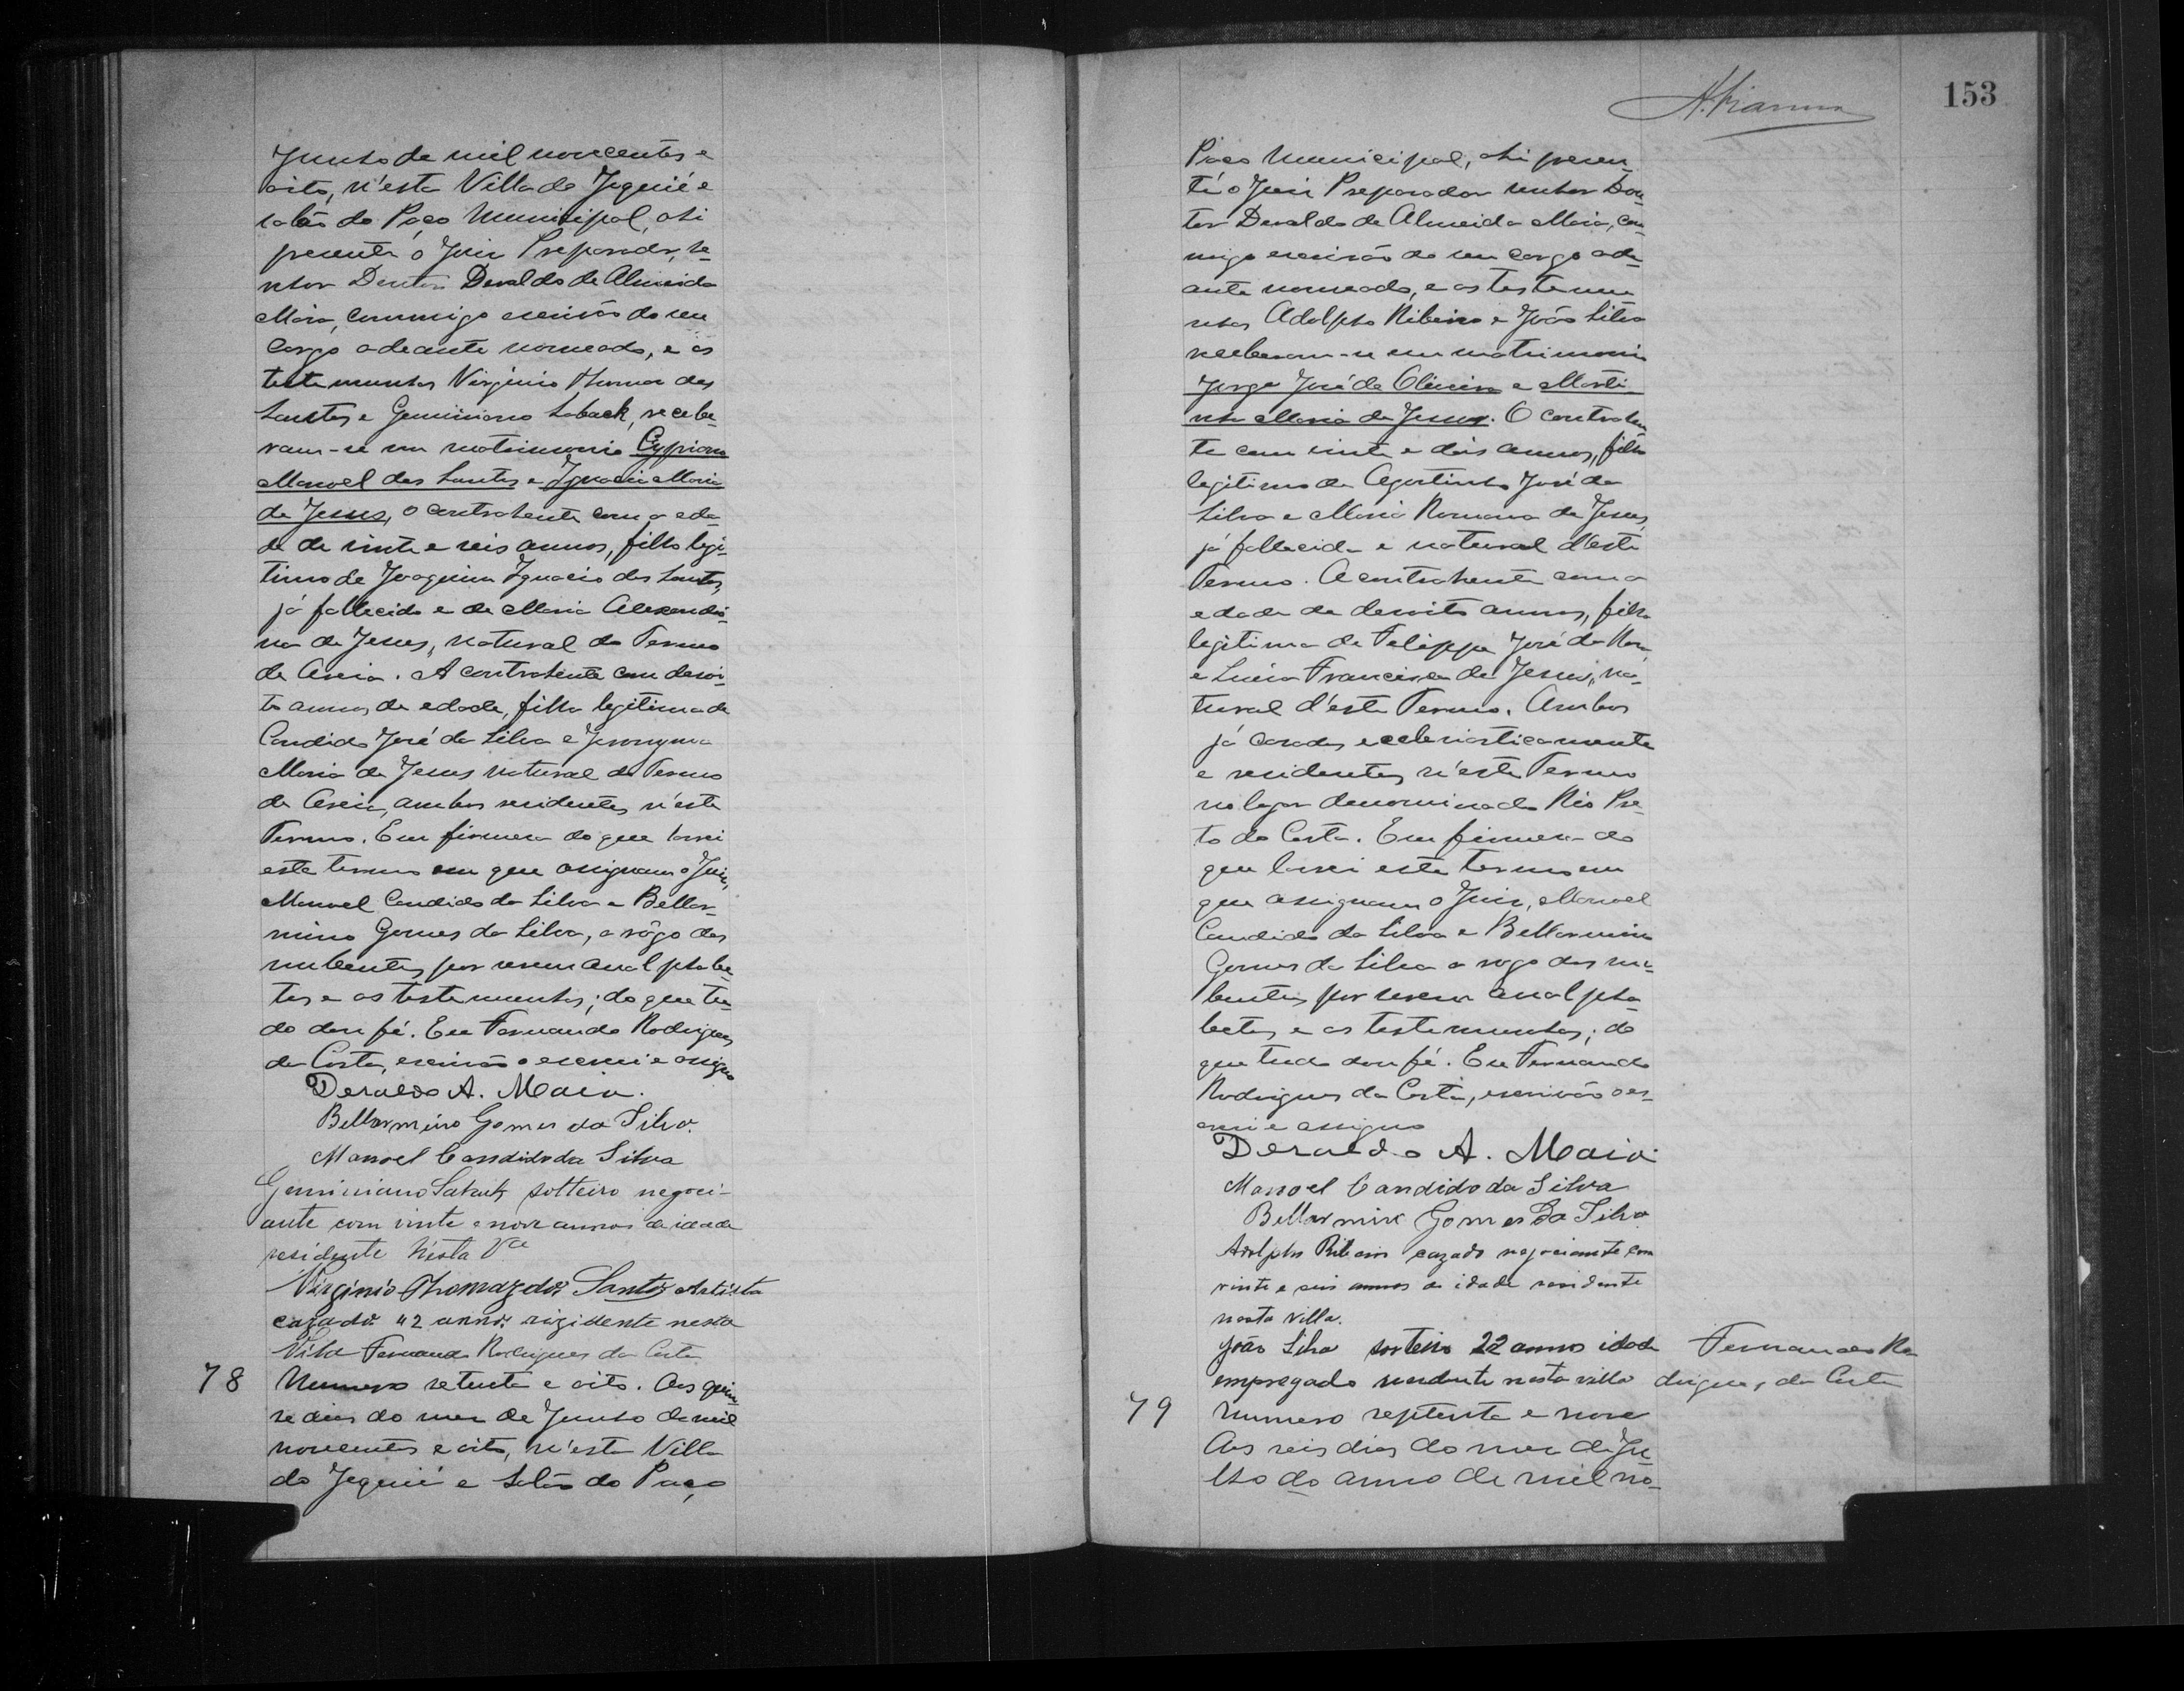 Junho de mil novecentos e
oito, n'esta Villa de Jequié e
salão do Paço Municipal, ahi
presente o Juiz Preparador, se-
nhor Doutor Deraldo de Almeida
Maia, commigo escrivão do seu
cargo adeante nomeado, e as
testemunhas Virginio Thomaz dos
Santos e Geminiano Saback, recebe-
ram-se em matrimonio Cypriano
Manoel dos Santos e Ignacia Maria
de Jesus, o contrahente com a eda-
de de vinte e seis annos, filho legi-
timo de Joaquim Ignacio dos Santos,
já fallecido e de Maria Alexandri-
na de Jesus, natural do Termo
de Areia. A contrahente com desoi-
to annos de edade, filha legitima de
Candido José da Silva e Jeronyma
Maria de Jesus natural do Termo
de Areia, ambos residentes n'este
Termo. Em firmeza do que lavrei
este termo em que assignam o Juiz,
Manoel Candido da Silva e Bellar-
mino Gomes da Silva, a rôgo dos
nubentes por serem analphabe-
tos e as testemunhas; do que tu-
do dou fé. Eu Fernando Rodrigues
da Costa, escrivão o escrevi e assigno
Deraldo A. Maia.
Bellarmino Gomes da Silva.
Manoel Candido da Silva
Geminiano Saback solteiro negoci-
ante com vinte e nove annos de idade
residente nésta Vª
Virginio Thomaz dos Santos Artista
cazado 42 annos rizidente nesta
Villa Fernando Rodrigues da Costa
78 Numero setenta e oito. Aos quin-
se dias do mez de Junho de mil
novecentos e oito, n'esta Villa
do Jequié e Salão do Paço
A. Vianna
153
Paço Municipal, ahi presen-
te o Juiz Preparador senhor Dou-
tor Deraldo de Almeida Maia, com-
migo escrivão do seu cargo ade-
ante nomeado, e as testemu-
nhas Adolpho Ribeiro e João Silva
receberam-se em matrimonio
Jorge José de Oliveira e Marti-
nha Maria de Jesus. O contrahen-
te com vinte e dois annos, filho
legitimo de Agostinho José da
Silva e Maria Romana de Jesus,
já fallecida e natural d'este
Termo. A contrahente com a
edade de desoito annos, filha
legitima de Felippe José da
e Lucia Francisca de Jesus, na-
tural d'este Termo. Ambos
já casados ecclesiasticamente
e residentes n'este Termo
no logar denominado Rio Pre-
to do Costa. Em firmeza do
que lavrei este termo em
que assignam o Juiz, Manoel
Candido da Silva e Bellarmino
Gomes da Silva a rogo dos nu-
bentes por serem analpha-
betos e as testemunhas; do
que tudo dou fé. Eu Fernando
Rodrigues da Costa, escrivão o es-
crevi e assigno
Deraldo A. Maia.
Manoel Candido da Silva
Bellarmino Gomes da Silva
Adolpho Ribeiro cazado negociante com
vinte e seis annos de idade residente
nesta villa.
João Silva sorteiro 22 annos idade
empregado residente nesta villa Fernando Ro-
drigues da Costa
79 Numero septenta e nove
Aos seis dias do mez de Ju-
lho do anno de mil no-